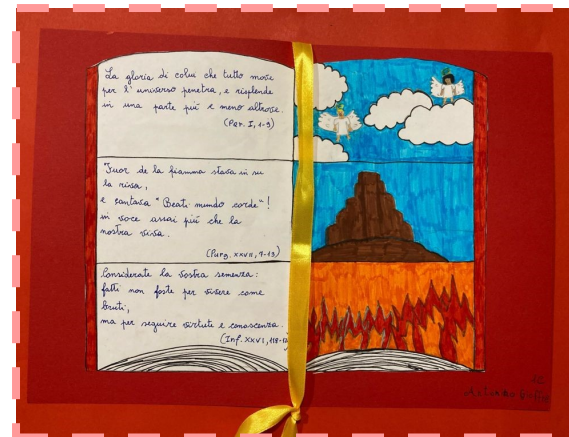 La gloria di colui che tutto move
per l'universo penetra, e risplende
in una parte più e meno altrove.
(Par. I, 1-3)
Fuor de la fiamma stava in su
la riva,
e cantava "Beati mundo corde"!
in voce assai più che la
nostra viva.
(Purg. XXVII, 7-13)
Considerate la vostra semenza:
fatti non foste per vivere come
bruti,
ma per seguire virtute e conoscenza.
(Inf. XXVI, 118-